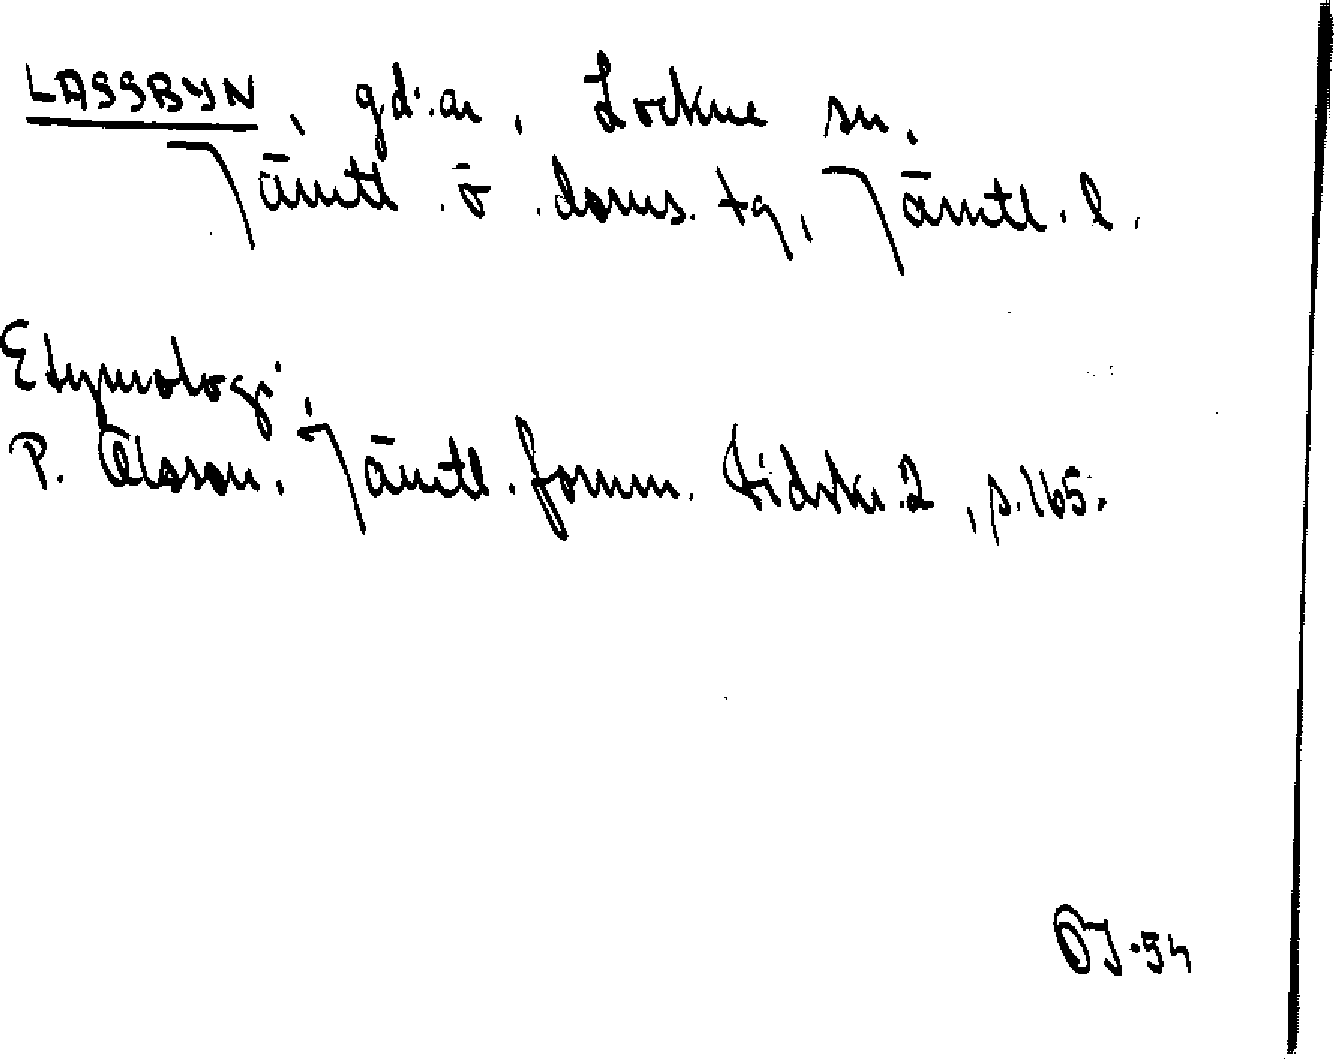 LASSBYN, gd:ar, Lockne sn,
Jämtl. ö. doms. tg, Jämtl. l.
Etymologi:
P. Olsson, Jämtl. fornm. tidskr. 2, s. 165.
OJ-54